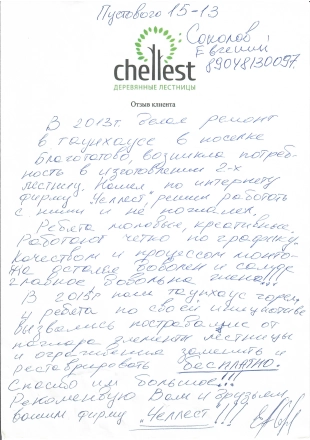 Пустового 15-13
Соколов
Евгений
89048130097
chellest
ДЕРЕВЯННЫЕ ЛЕСТНИЦЫ
Отзыв клиента
В 2013г. делая ремонт
в таунхаусе в поселке
благодатово, возникла потреб-
ность в изготовлении 2-х
лестниц. Нашел по интернету
фирму "Челлест", решил работать
с ними и не пожалел.
Ребята молодые, креативные.
Работают четко по графику.
Качеством и процессом монта-
жа остался доволен и самое
главное довольна жена!!!
В 2015г наш таунхаус горел
и ребята по своей инициативе
вызвались пострадавшие от
пожара элементы лестницы
и ограждения заменить и
реставрировать БЕСПЛАТНО.
Спасибо им большое!!!
Рекомендую Вам и друзьям
вашим фирму "Челлест"!!!